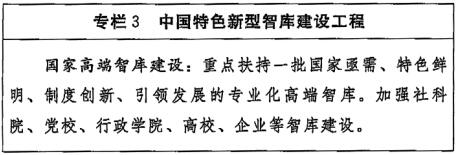 专栏3 中国特色新型智库建设工程
国家高端智库建设：重点扶持一批国家亟需、特色鲜
明、制度创新、引领发展的专业化高端智库。加强社科
院、党校、行政学院、高校、企业等智库建设。